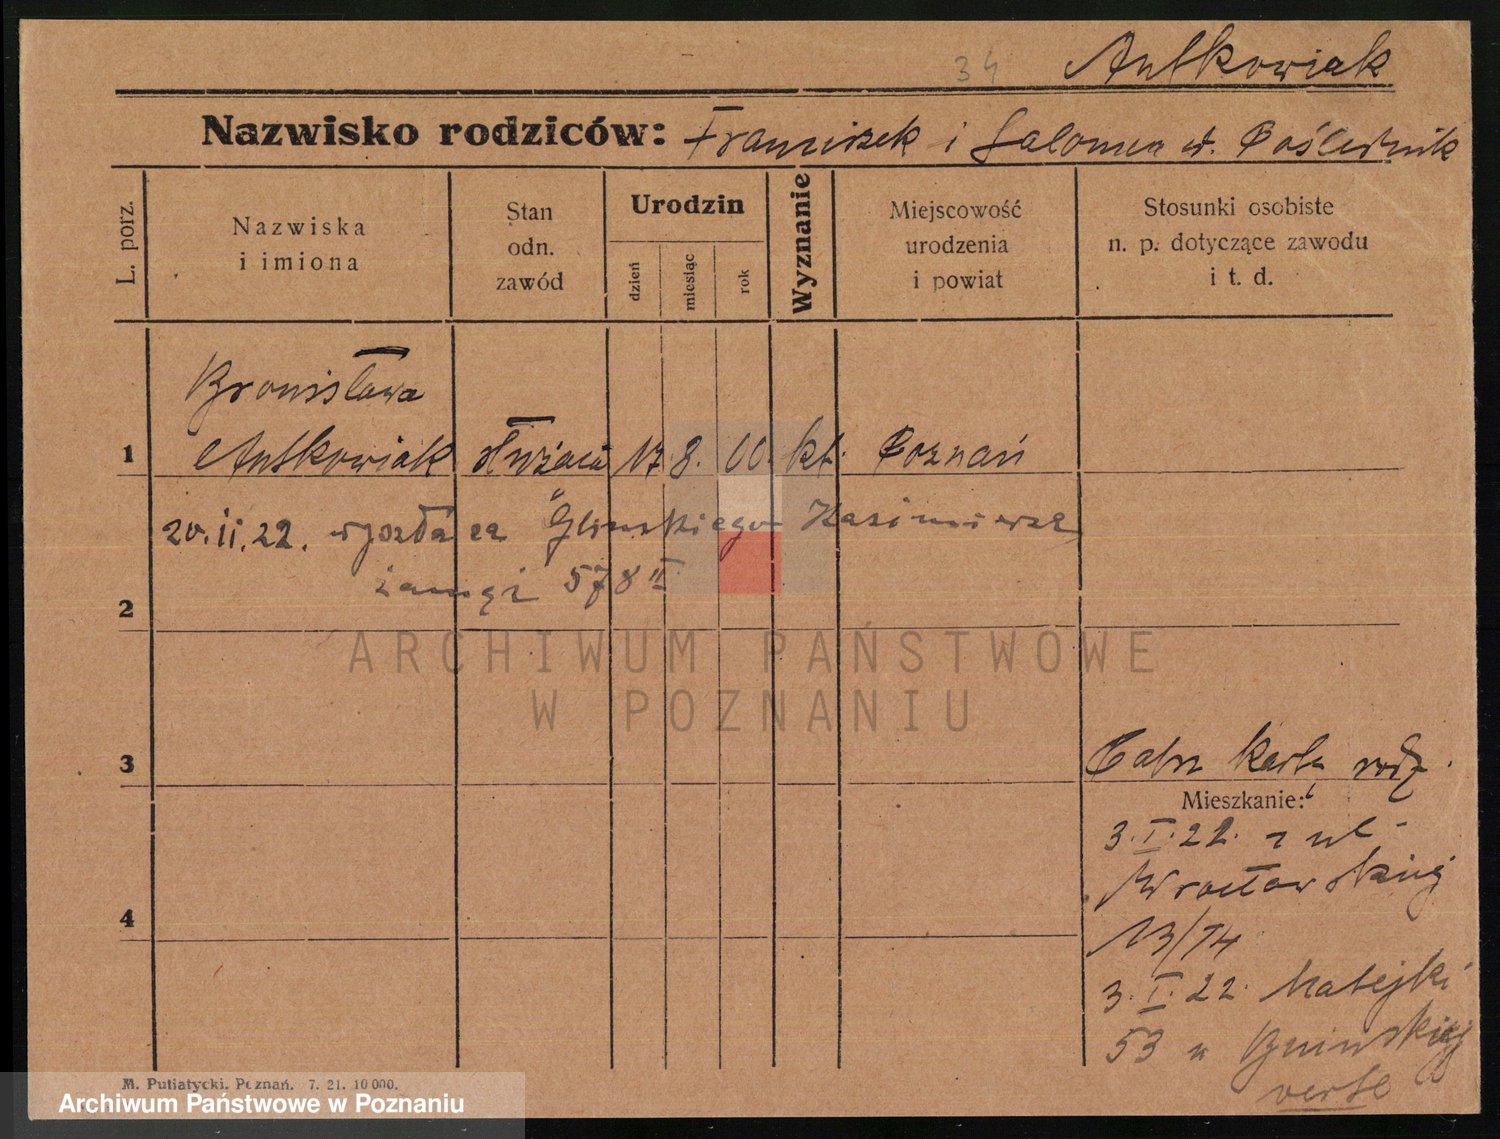 34 Antkowiak
Nazwisko rodziców: Franciszek i Salomea
L. porz.
Nazwiska
i imiona
Stan
odn.
zawód
Urodzin
dzień
miesiąc
rok
Wyznanie
Miejscowość
urodzenia
i powiat
Stosunki osobiste
n. p. dotyczące zawodu
i t. d.
Bronisława
1 Antkowiak służąca 17. 8. 00. kt. Poznań
20.11.22. wyszła za Glinskiego Kazimierza
578 II
2
ARCHIWUM PAŃSTWOWE
W POZNANIU
3
karta rodz.
Mieszkanie:
3.I.22. z ul.
Wrocławskiej
4
13/14
3.I.22. Matejki
53 u Bninskiej
verte
M. Putiatycki. Poznań. 7. 21. 10 000.
Archiwum Państwowe w Poznaniu